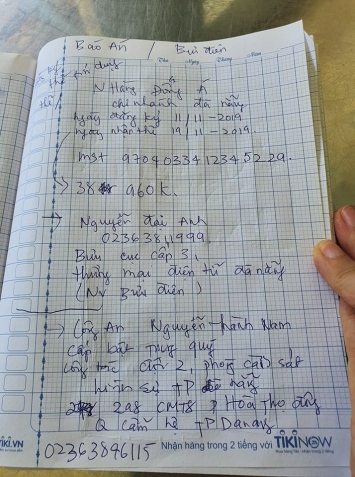 Báo Án / Bưu điện
Thứ Ngày Tháng Năm
N Hàng Đông Á
chi nhánh đà nẵng
ngày đăng ký 11/11-2019
ngày nhận thẻ 19/11-2019.
mst 9704 0334 1234 52 29.
→ 38 960k.
→ Nguyễn đại Anh
02363811999
Bưu cục cấp 3,
thương mại điện tử đà nẵng
(NV Bưu điện)
→ Công An Nguyễn Thành Nam
cấp bật trung quý
công tác đội 2, phòng cảnh sát
hình sự TP đà nẵng
2a8 CMT8 P Hòa Thọ đông
Q Cẩm lệ TP Danang
02363846115
KI.VN
Nhận hàng trong 2 tiếng với TIKINOW